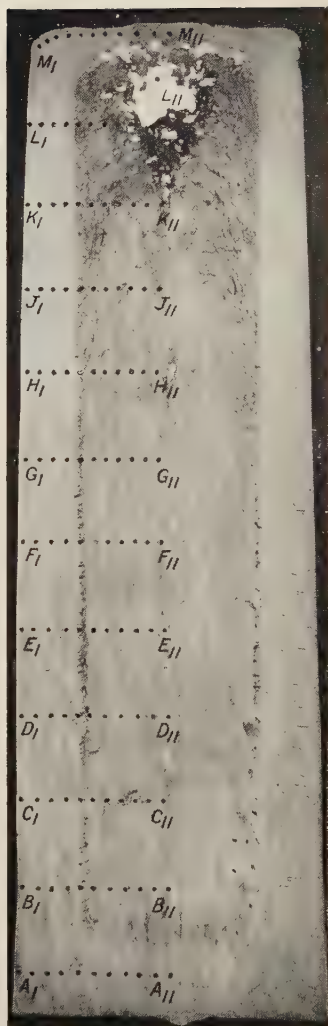 M_I M_II
L_I L_II
K_I K_II
J_I J_II
H_I H_II
G_I G_II
F_I F_II
E_I E_II
D_I D_II
C_I C_II
B_I B_II
A_I A_II